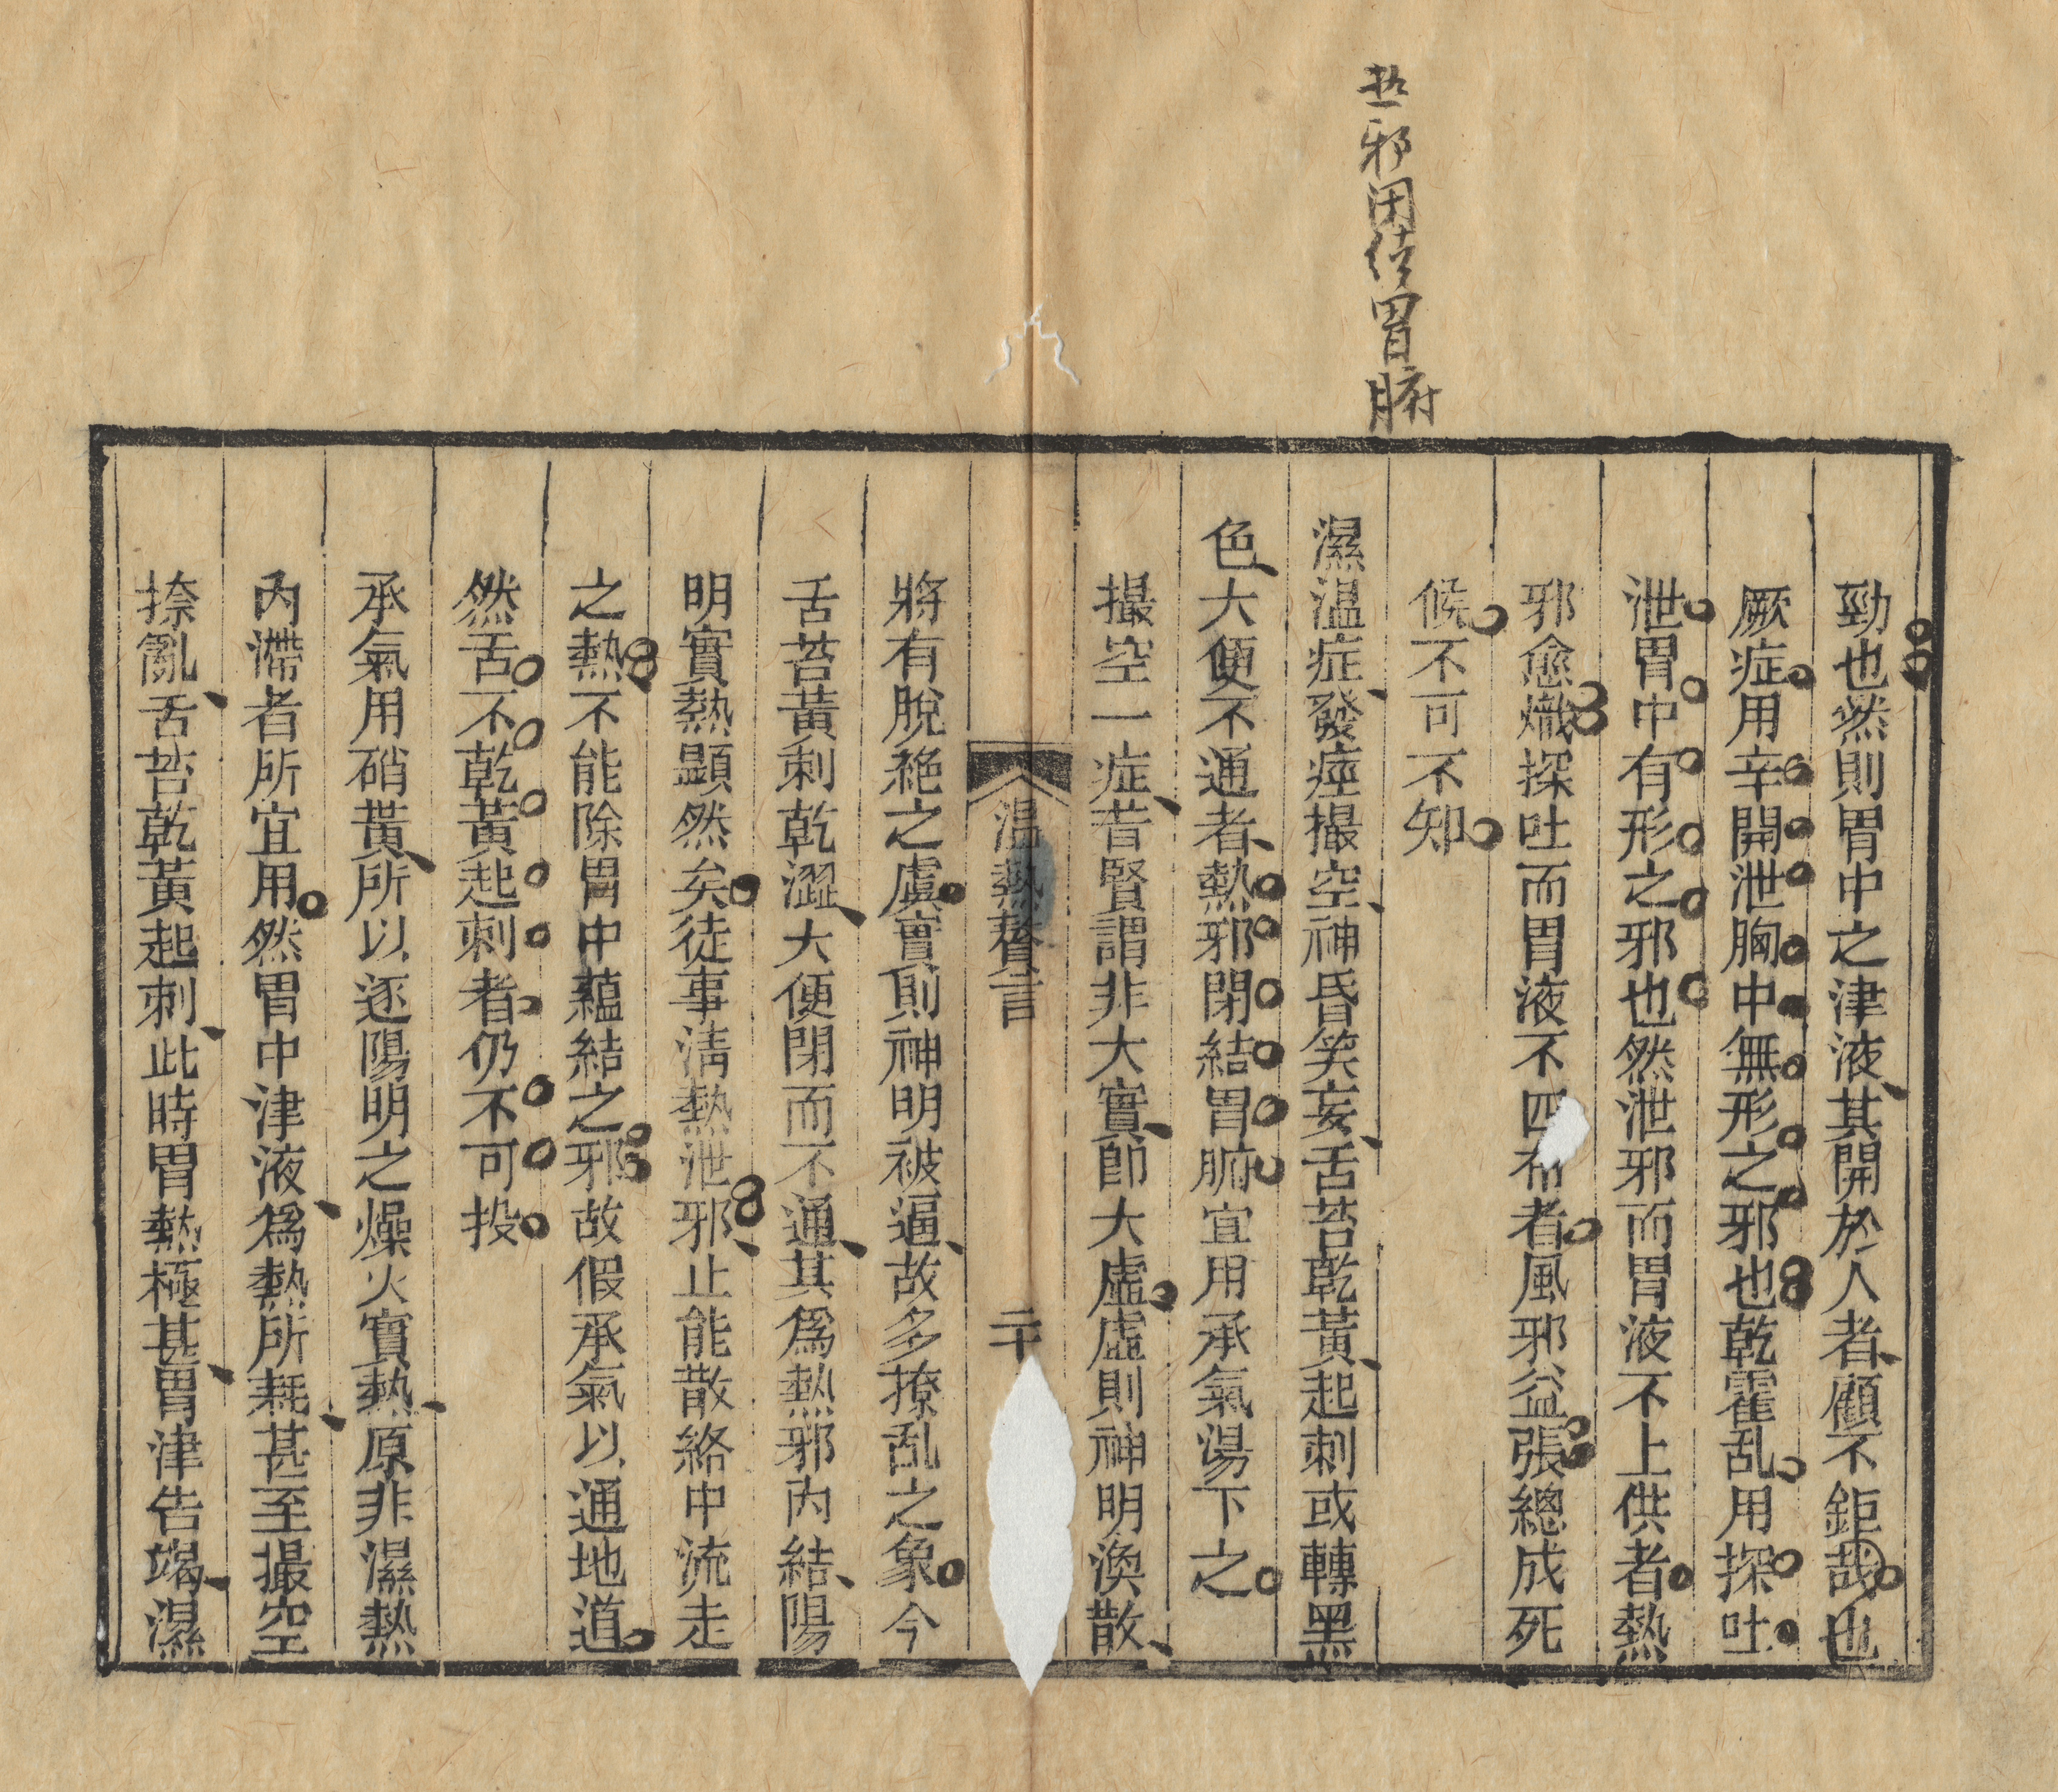 热邪闭结胃腑
勁也然則胃中之津液其開於人者顧不鉅哉也
厥症用辛開泄胸中無形之邪也乾霍乱用探吐
泄胃中有形之邪也然泄邪而胃液不上供者熱
邪愈熾探吐而胃液不四布者風邪益張總成死
候不可不知
濕温症發痙撮空神昏笑妄舌苔乾黃起刺或轉黑
色大便不通者熱邪閉結胃腑宜用承氣湯下之
撮空一症昔賢謂非大實即大虛虛則神明渙散
將有脫絕之虞實則神明被逼故多撩乱之象今
舌苔黃刺乾澀大便閉而不通其爲熱邪內結陽
明實熱顯然矣徒事清熱泄邪止能散絡中流走
之熱不能除胃中蘊結之邪故假承氣以通地道
然舌不乾黃起刺者仍不可投
承氣用硝黃所以逐陽明之燥火實熱原非濕熱
內滯者所宜用然胃中津液爲熱所耗甚至撮空
撩亂舌苔乾黃起刺此時胃熱極甚胃津告竭濕
温熱贅言
二十